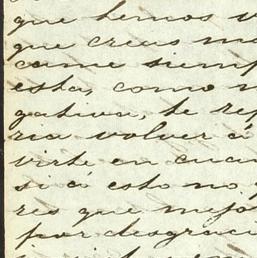 que hemos v
que creas me
came siemp
esta, como n
gativa, te rep
ria volver á
virte en cua
si á esto no
res que mejo
por desgraci